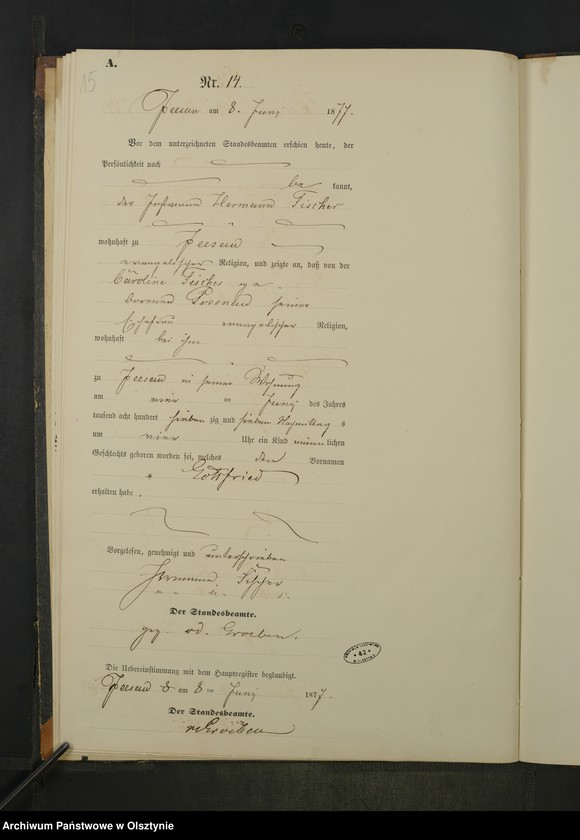 A.
15
Nr. 14.
am 8. Juny 1877.
Vor dem unterzeichneten Standesbeamten erschien heute, der
Persönlichkeit nach
be kannt,
der Hermann Fischer
wohnhaft zu
evangelischer Religion, und zeigte an, daß von der
Caroline Fischer ge-
borenen seiner
Ehefrau evangelischer Religion,
wohnhaft bei ihm
zu in seiner Wohnung
am vier ten Juny des Jahres
tausend acht hundert sieben zig und sieben Nachmittag s
um vier Uhr ein Kind männ lichen
Geschlechts geboren worden sei, welches den Vornamen
Gottfried
erhalten habe.
Vorgelesen, genehmigt und unterschrieben
Hermann Fischer
Der Standesbeamte.
gez. Groeben.
Die Uebereinstimmung mit dem Hauptregister beglaubigt.
am 8 ten Juny 1877.
Der Standesbeamte.
Groeben
42
Archiwum Państwowe w Olsztynie